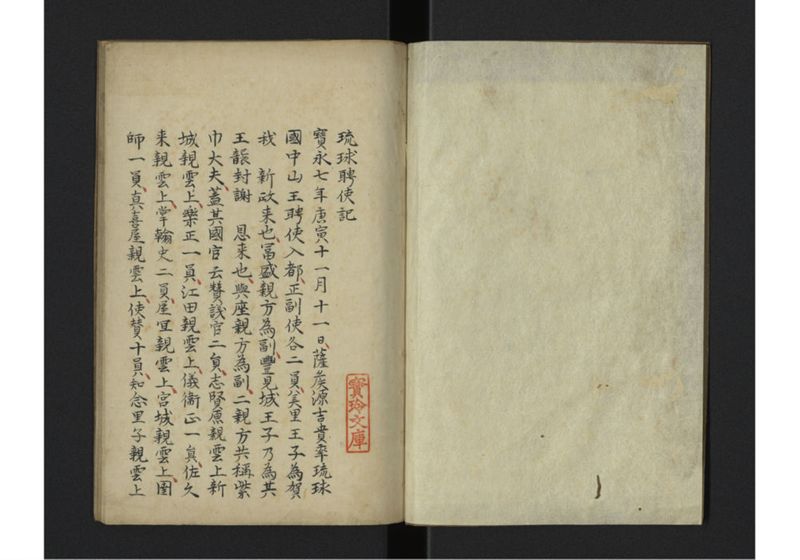 琉球聘使記
寶永七年庚寅十一月十一日薩侯源吉貴率琉球
國中山王聘使入都正副使各二員美里王子為賀
我 新政来也冨盛親方為副豐見城王子乃為其
王襲封謝 恩来也與座親方為副二親方共稱紫
巾大夫蓋其國官云賛議官二員志賢廉親雲上新
城親雲上樂正一員江田親雲上儀衛正一員佐久
来親雲上掌翰史二員屋冝親雲上宮城親雲上圉
師一員真喜屋親雲上使賛十員知念里子親雲上
寶玲文庫